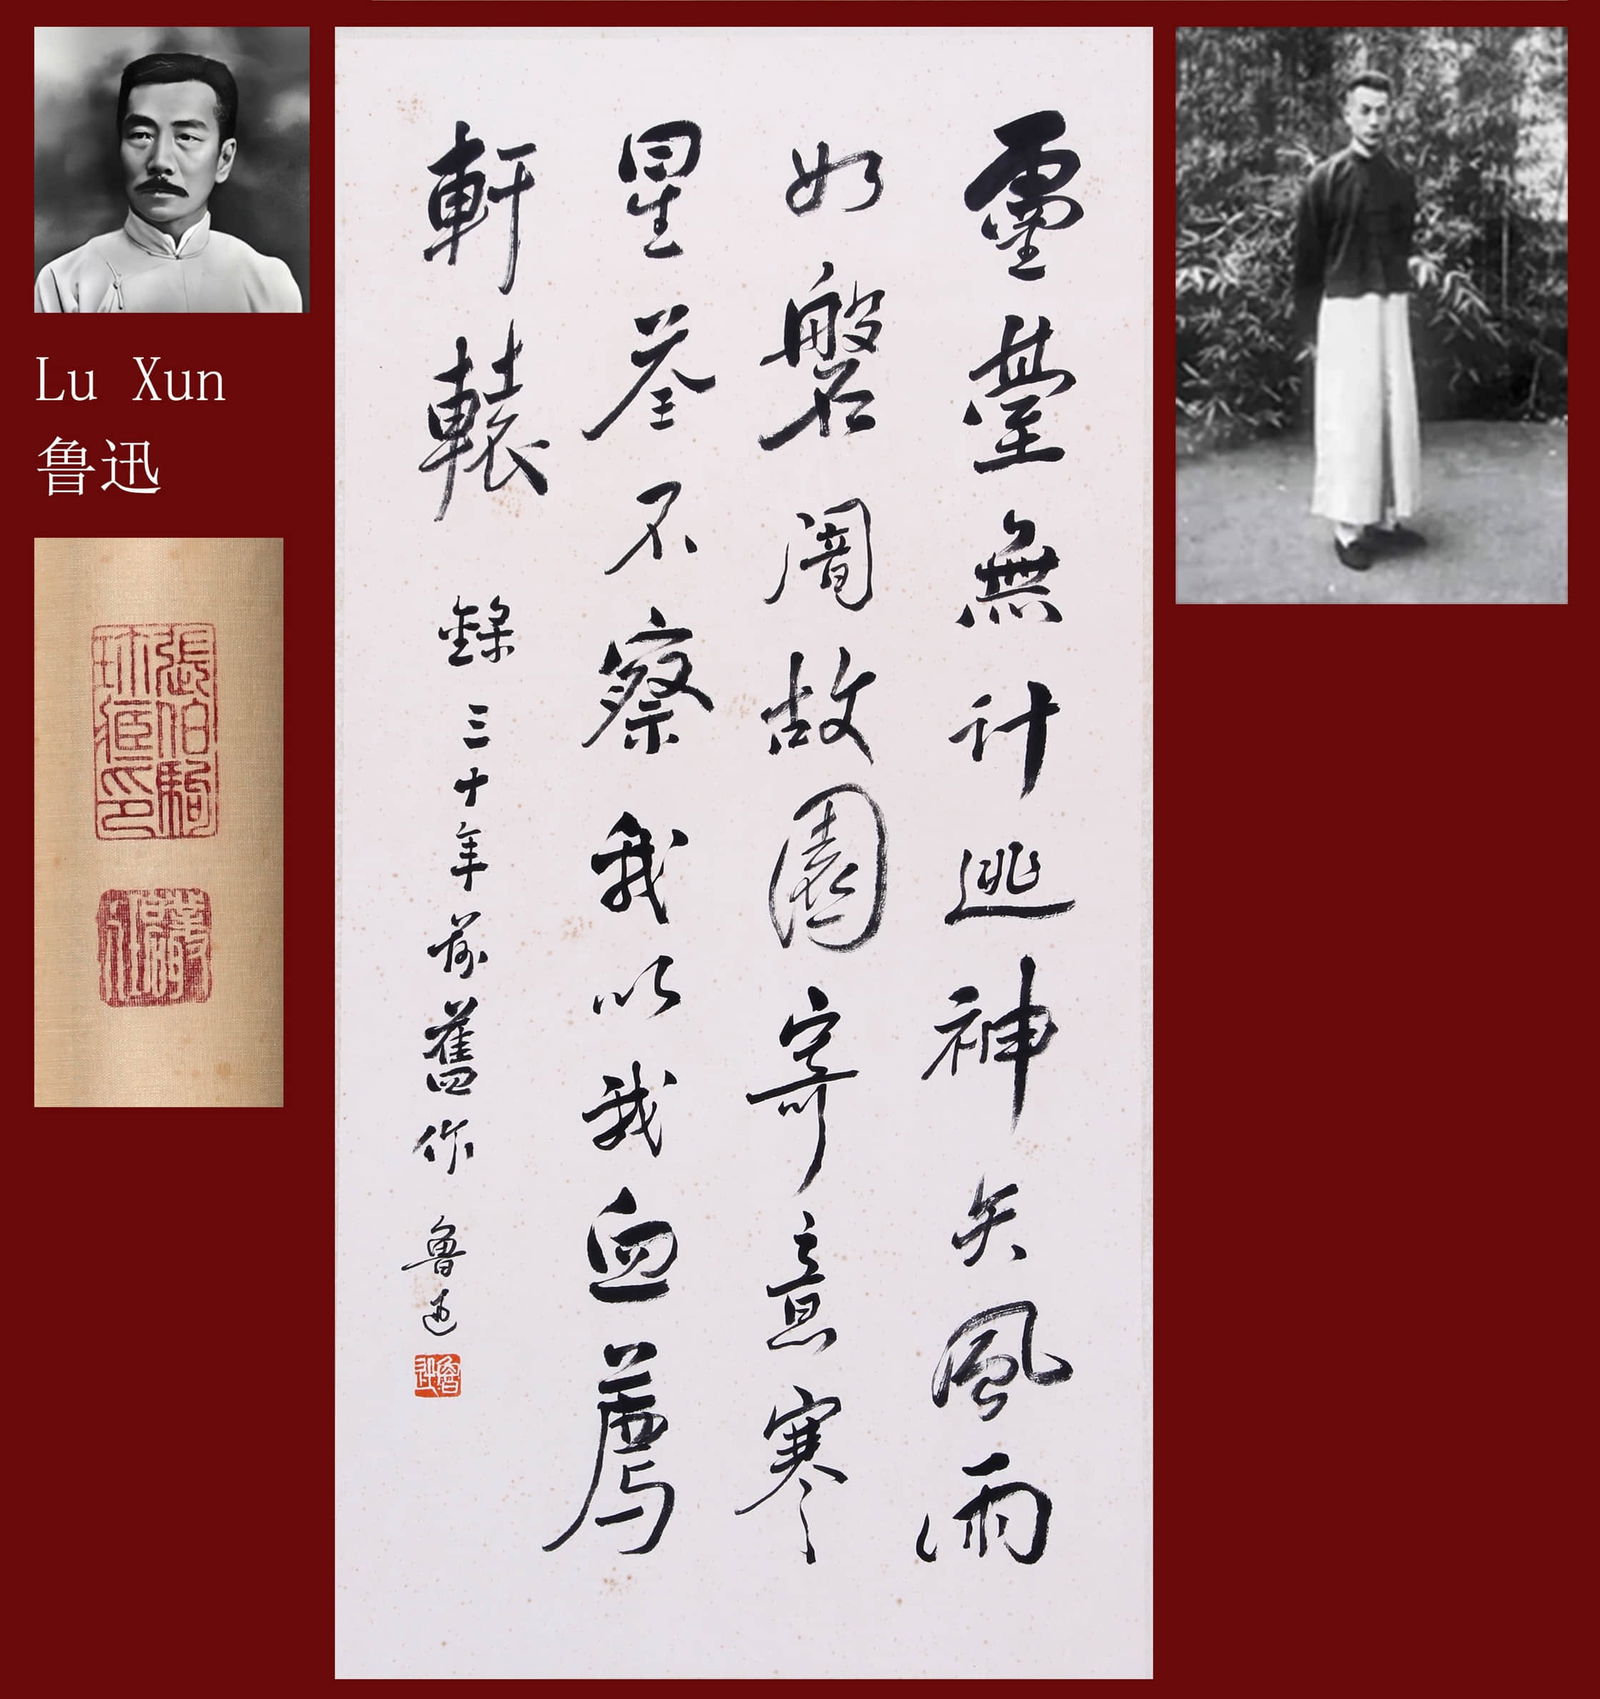 Lu Xun
鲁迅
靈臺無計逃神矢風雨
如磐闇故園寄意寒
星荃不察我以我血薦
軒轅
錄三十年前舊作 魯迅
魯迅
張伯駒
珍藏印